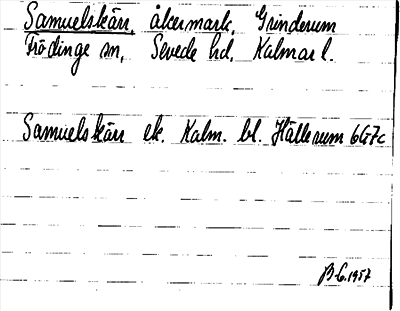 Samuelskärr, åkermark, Grinderum
Frödinge sn, Sevede hd, Kalmar l.
Samuelskärr ek. Kalm. bl. Hällerum 6G7c
B-G. 1957